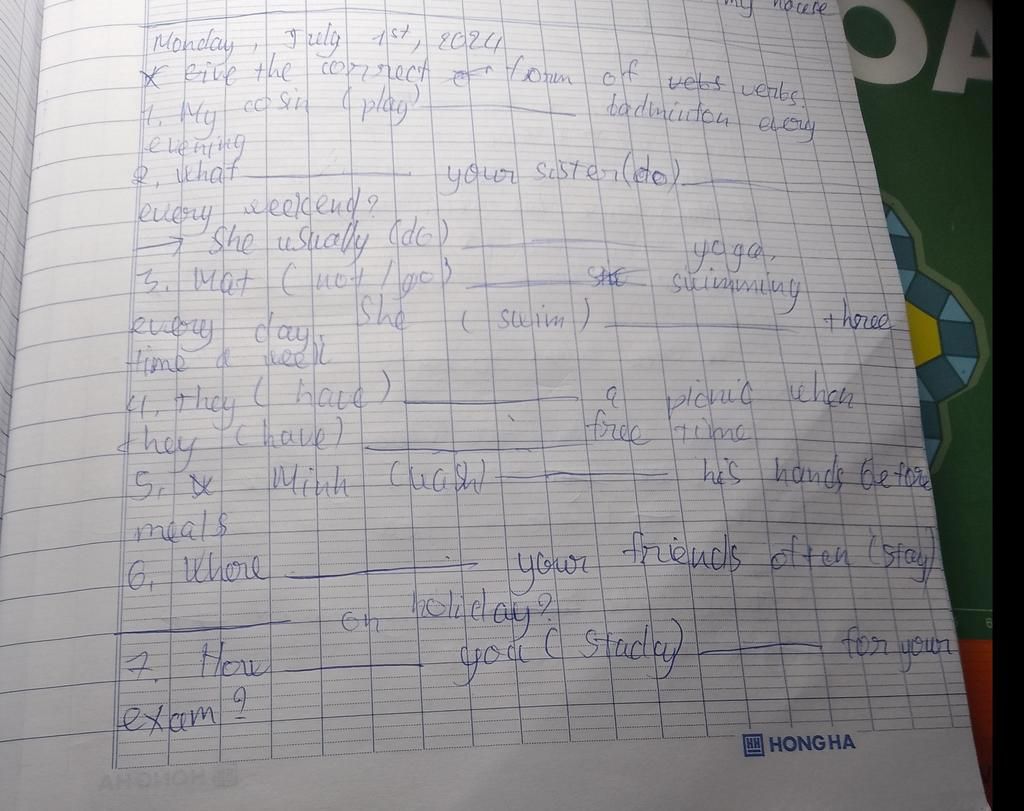 my house
Monday, July 1st, 2024
* Give the correct form of verbs.
1. My cosin (play) ________ badminton every
evening
2. What ________ your sister (do) ________
every weekend?
→ She usually (do) ________ yoga.
3. Mat (not / go) ________ swimming
every day. She (swim) ________ three
time a week
4. They (have) ________ a picnic when
they (have) ________ free time
5. Minh (wash) ________ his hands before
meals
6. Where ________ your friends often (stay)
________ on holiday?
7. How ________ you (study) ________ for your
exam?
HH HONG HA
OA